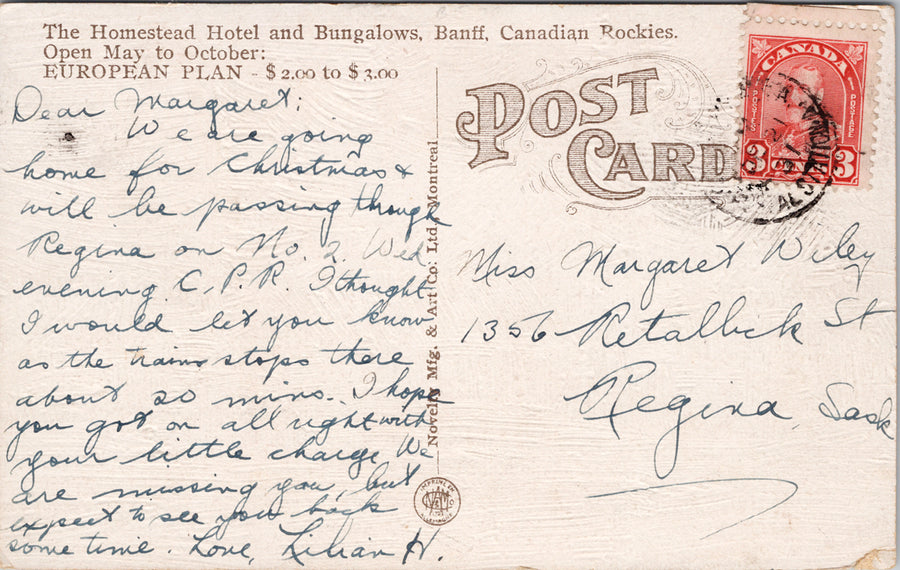 The Homestead Hotel and Bungalows, Banff, Canadian Rockies.
Open May to October:
EUROPEAN PLAN - $2.00 to $3.00
Dear Margaret;
We are going
home for Christmas &
will be passing through
Regina on No. 2 Wed
evening C.P.R. I thought
I would let you know
as the train stops there
about 20 mins. I hope
you got on all right with
your little charge. We
are missing you, but
expect to see you back
some time. Love, Lilian H.
Novelty Mfg. & Art Co: Ltd. Montreal
POST
CARD
CANADA
POSTES
POSTAGE
3 CENTS 3
Miss Margaret Wiley
1356 Retallick St
Regina, Sask